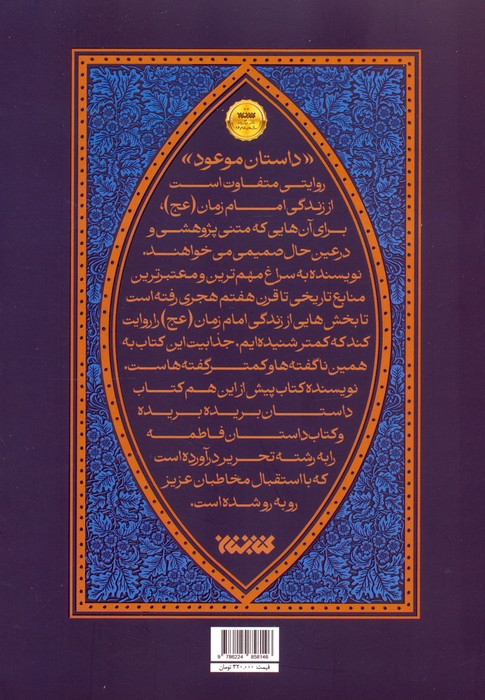 «داستان موعود»
روایتی متفاوت است
از زندگی امام زمان (عج)،
برای آن‌هایی که متنی پژوهشی و
در عین حال صمیمی می‌خواهند.
نویسنده به سراغ مهم‌ترین و معتبرترین
منابع تاریخی تا قرن هفتم هجری رفته است
تا بخش‌هایی از زندگی امام زمان (عج)، را روایت
کند که کمتر شنیده‌ایم. جذابیت این کتاب به
همین ناگفته‌ها و کمتر گفته‌هاست.
نویسنده کتاب پیش از این هم کتاب
داستان بریده بریده
و کتاب داستان فاطمه
را به رشته تحریر درآورده است
که با استقبال مخاطبان عزیز
روبه‌رو شده است.
کتابستان
9 786224 858146
قیمت: ۳۲۰,۰۰۰ تومان